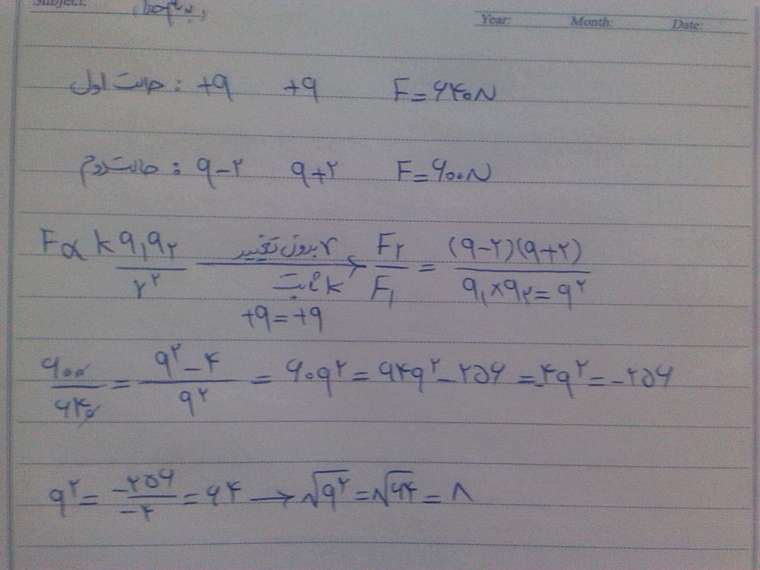 Subject:
Year: Month: Date:
حالت اول : +q +q F=۶۴۰N
حالت دوم : q-۲ q+۲ F=۶۰۰N
F∝ k q₁q₂/r² r بدون تغییر و k ثابت → F₂/F₁ = (q-۲)(q+۲)/q₁×q₂=q²
+q=+q
۶۰۰/۶۴۰ = q²-۴/q² = ۶۰q²=۶۴q²-۲۵۶ =-۴q²=-۲۵۶
q²= -۲۵۶/-۴ =۶۴ → √q²=√۶۴=۸